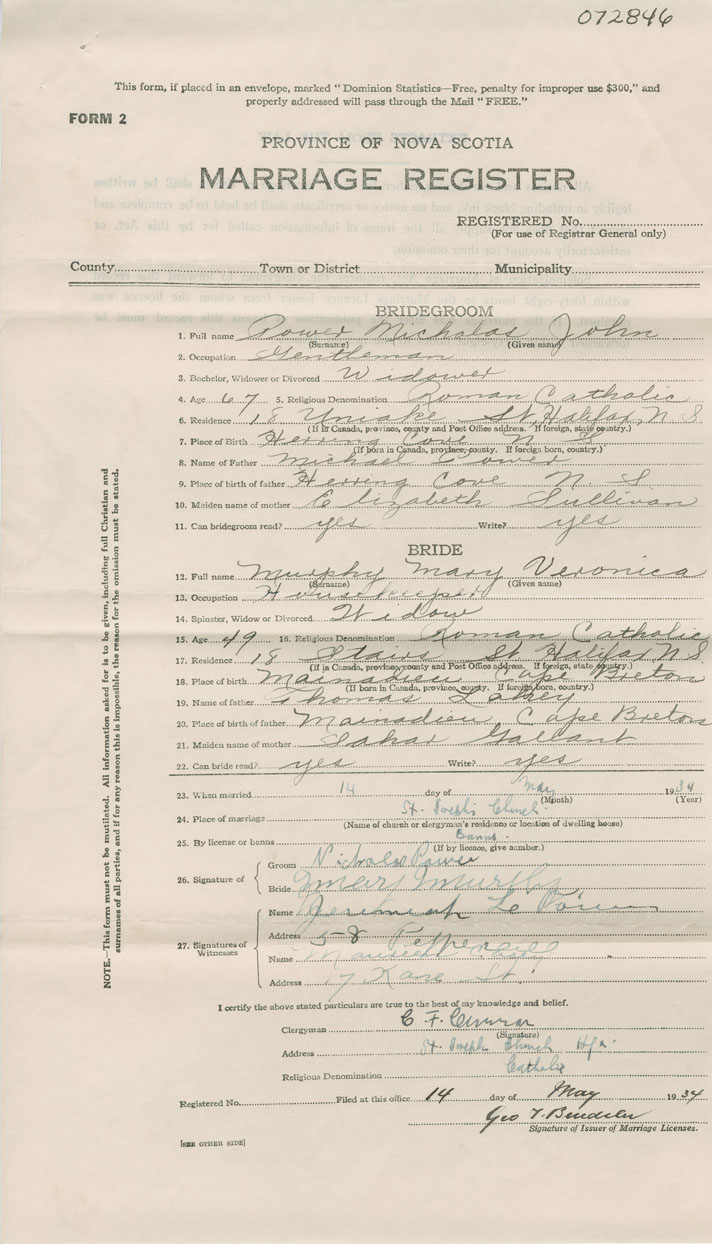 072846
This form, if placed in an envelope, marked "Dominion Statistics—Free, penalty for improper use $300," and
properly addressed will pass through the Mail "FREE."
FORM 2
PROVINCE OF NOVA SCOTIA
MARRIAGE REGISTER
REGISTERED No.
(For use of Registrar General only)
County Town or District Municipality
BRIDEGROOM
1. Full name Power Nicholas John
(Surname) (Given name)
2. Occupation Gentleman
3. Bachelor, Widower or Divorced Widower
4. Age 67 5. Religious Denomination Roman Catholic
6. Residence 18 Uniake St, Halifax, N. S.
(If in Canada, province, county and Post Office address. If foreign, state country.)
7. Place of Birth Herring Cove N. S
(If born in Canada, province, county. If foreign born, country.)
8. Name of Father Michael Power
9. Place of birth of father Herring Cove N. S.
10. Maiden name of mother Elizabeth Sullivan
11. Can bridegroom read? yes Write? yes
BRIDE
12. Full name Murphy Mary Veronica
(Surname) (Given name)
13. Occupation Housekeeper
14. Spinster, Widow or Divorced Widow
15. Age 49 16. Religious Denomination Roman Catholic
17. Residence 18 Stairs St. Halifax N S
(If in Canada, province, county and Post Office address. If foreign, state country.)
18. Place of birth Mainadieu Cape Breton
(If born in Canada, province, county. If foreign born, country.)
19. Name of father Thomas Lahey
20. Place of birth of father Mainadieu, Cape Breton
21. Maiden name of mother Gallant
22. Can bride read? yes Write? yes
23. When married 14 day of May 1934
(Month) (Year)
24. Place of marriage St. Joseph's Church
(Name of church or clergyman's residence or location of dwelling house)
25. By license or banns Banns.
(If by licence, give number.)
26. Signature of Groom Nicholas Power
Bride Mary Murphy
27. Signatures of Witnesses Name Jeremiah
Address 58
Name
Address 17 Kane St.
I certify the above stated particulars are true to the best of my knowledge and belief.
Clergyman C. F. Curran
(Signature)
Address St. Joseph's Church Hfx.
Religious Denomination Catholic
Registered No. Filed at this office 14 day of May 1934
Geo T.
Signature of Issuer of Marriage Licenses.
[SEE OTHER SIDE]
NOTE.—This form must not be mutilated. All information asked for is to be given, including full Christian and
surnames of all parties, and if for any reason this is impossible, the reason for the omission must be stated.